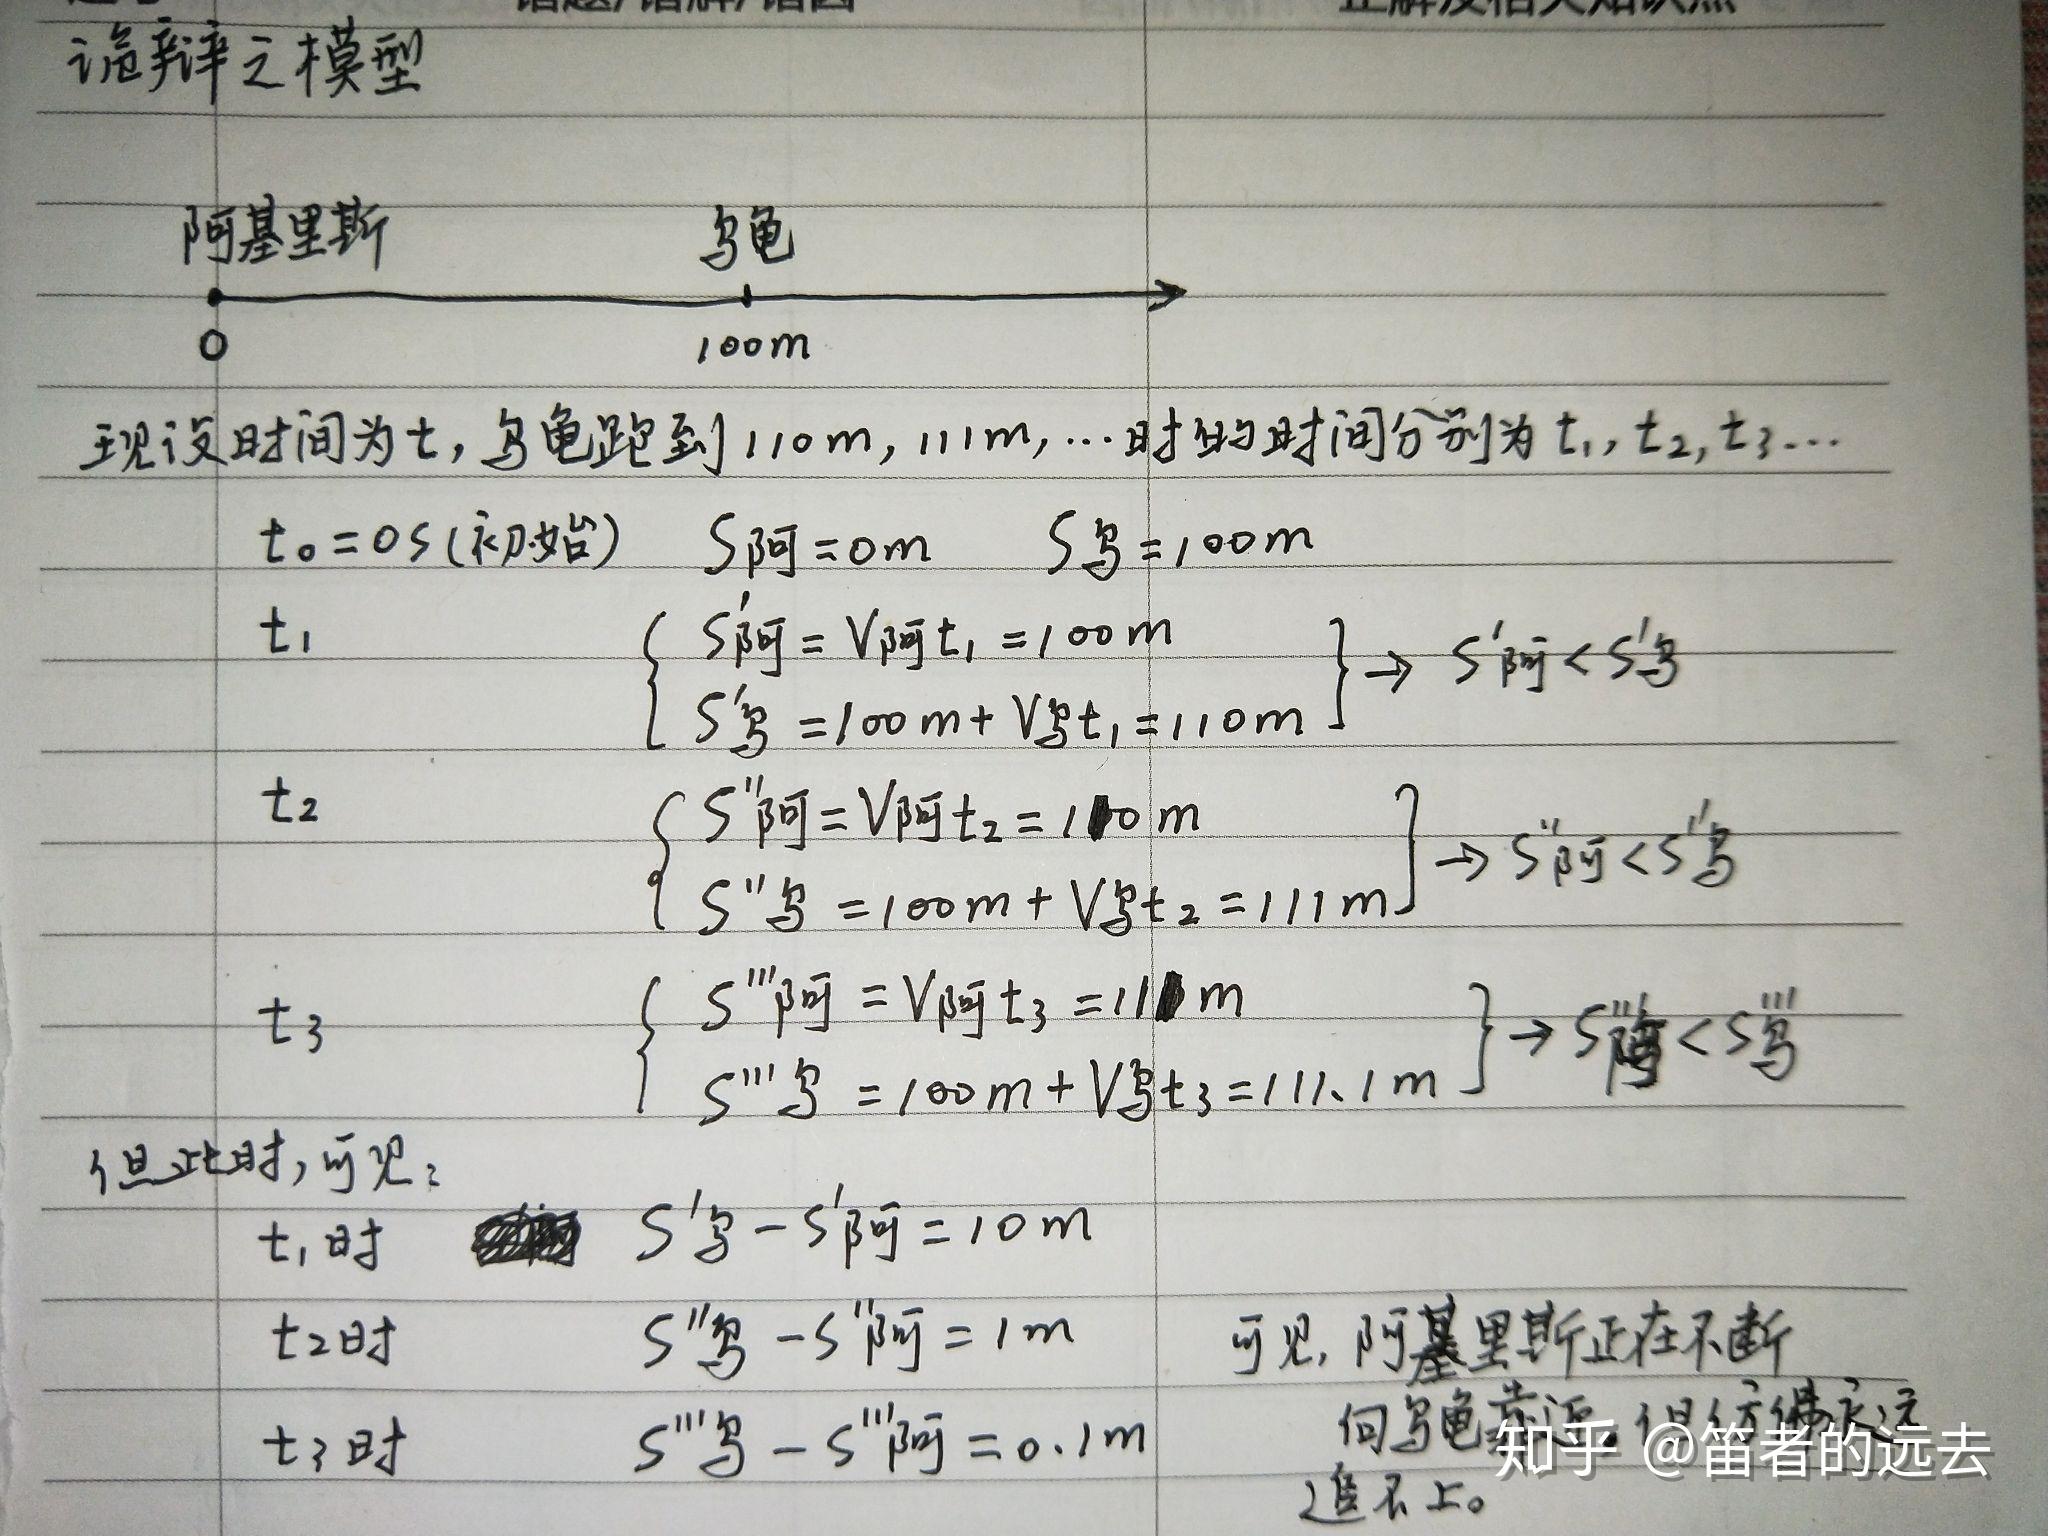 错题/错解/错因 正解及相关知识点
诡辩之模型
阿基里斯 乌龟
0 100m
现设时间为t,乌龟跑到110m,111m,…时的时间分别为t₁,t₂,t₃…
t₀=0s(初始) S阿=0m S乌=100m
t₁ S'阿=V阿t₁=100m
S'乌=100m+V乌t₁=110m → S'阿<S'乌
t₂ S''阿=V阿t₂=110m
S''乌=100m+V乌t₂=111m → S''阿<S''乌
t₃ S'''阿=V阿t₃=111m
S'''乌=100m+V乌t₃=111.1m → S'''阿<S'''乌
但此时,可见:
t₁时 S'乌-S'阿=10m
t₂时 S''乌-S''阿=1m
t₃时 S'''乌-S'''阿=0.1m
可见,阿基里斯正在不断
向乌龟靠近。但仿佛永远
追不上。
知乎 @笛者的远去